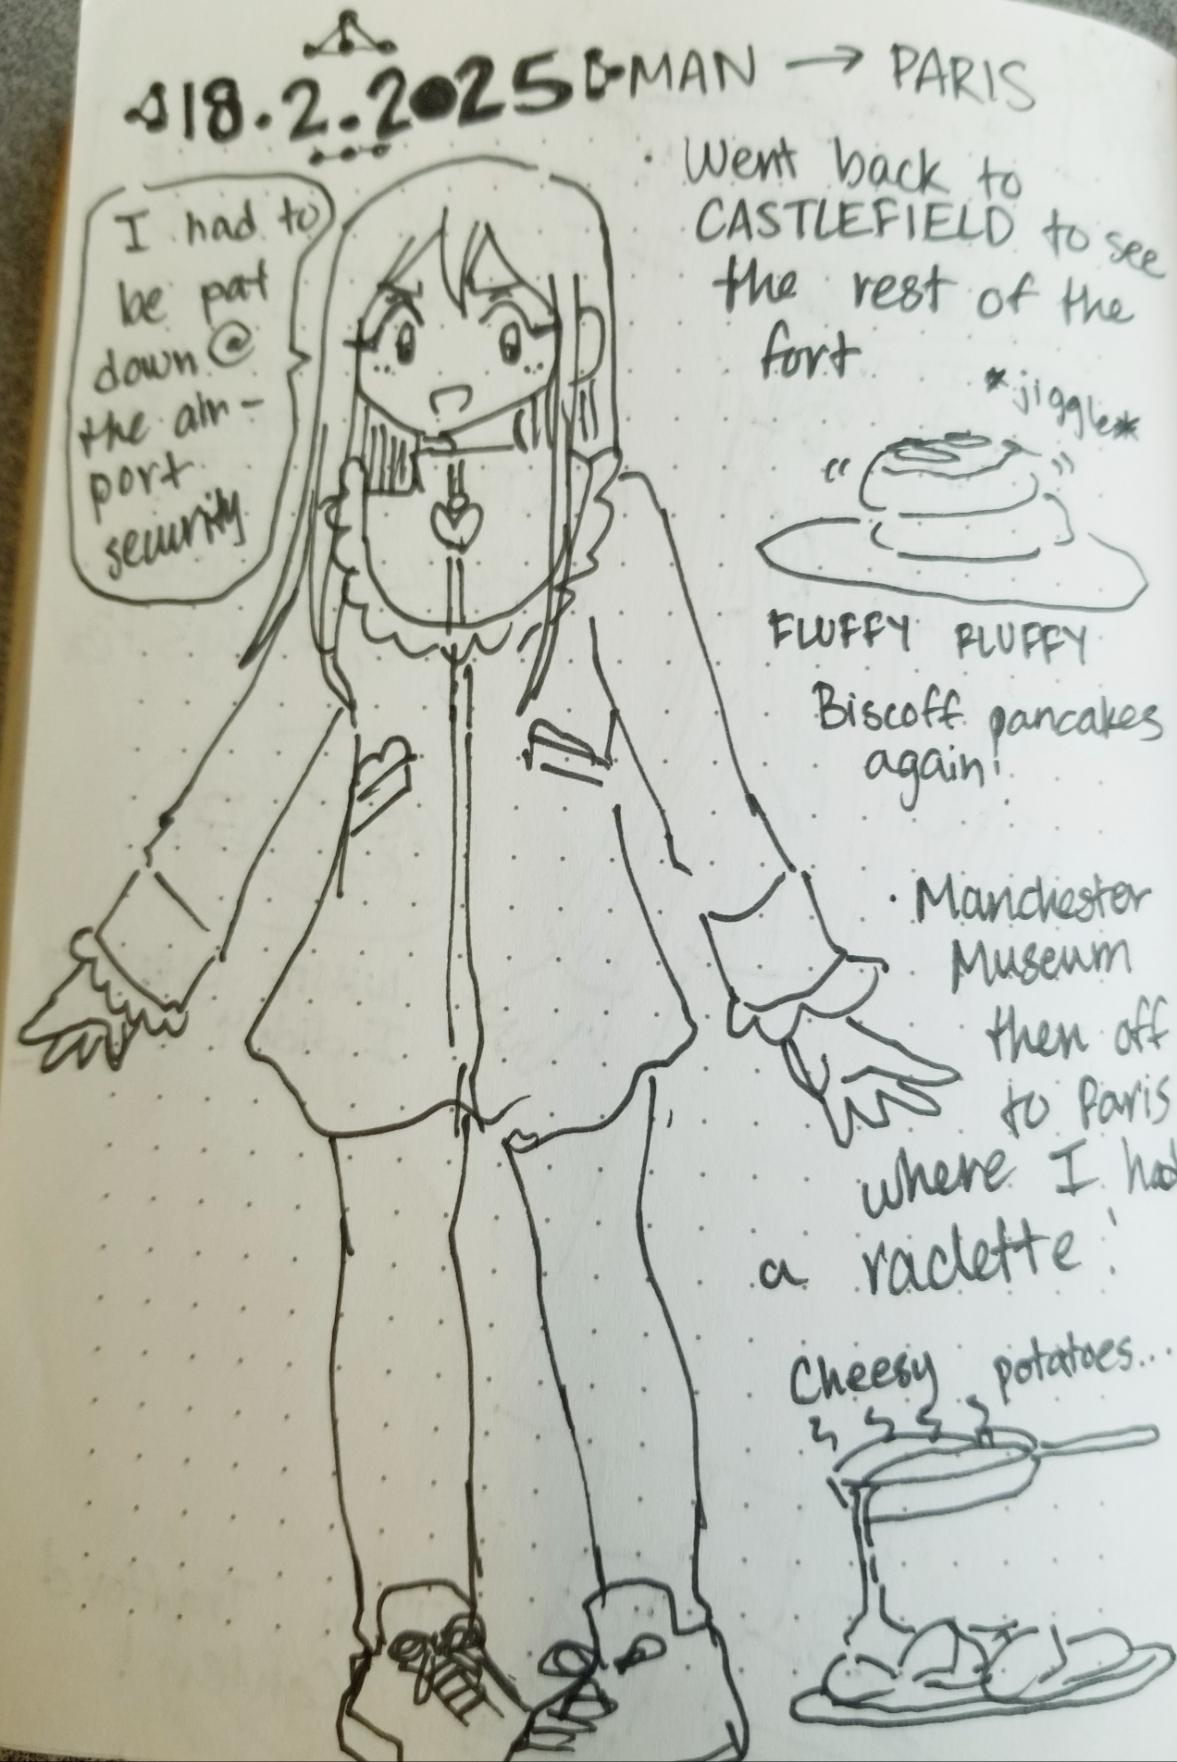 18.2.2025 MAN → PARIS
I had to
be pat
down @
the air-
port
security
· Went back to
CASTLEFIELD to see
the rest of the
fort
*jiggle*
FLUFFY FLUFFY
Biscoff pancakes
again!
· Manchester
Museum
then off
to Paris
where I had
a raclette!
Cheesy potatoes...